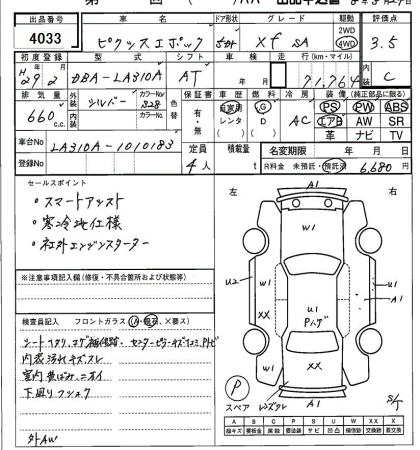 出品番号 車名 ドア形状 グレード 駆動 評価点
4033 ピクシスエポック 5ドア Xf SA 2WD 4WD 3.5
初度登録 型式 シフト 車検 走行(km・マイル) 内装
H29.2 DBA-LA310A AT 年 月 71,764 C
排気量 外装 シルバー カラーNo S28 色替 保証書 車歴 燃料 冷房 装備(純正部品に限る)
660 c.c. 内装 カラーNo 有・無 自家用 レンタ G D AC PS PW ABS
エアB AW SR
革 ナビ TV
車台No LA310A-1010183 定員 積載量 名変期限 年 月 日
登録No 4人 t R料金 未預託・預託済 6,680 円
セールスポイント
・スマートアシスト
・寒冷地仕様
・社外エンジンスターター
※注意事項記入欄(修復・不具合箇所および状態等)
検査員記入 フロントガラス (A・飛石、×要ス)
内装汚れキズスレ
下廻りフショク
外AW
左 右
A1
W1 W1
U2 U1 A1
U1
Pハゲ
W1
XX XX
A1
P
スペア レンズワレ S/T
A B C P S U W X XX
線キズ 要板金 腐蝕 要塗装 サビ 凹凸 補修跡 要交換 交換済